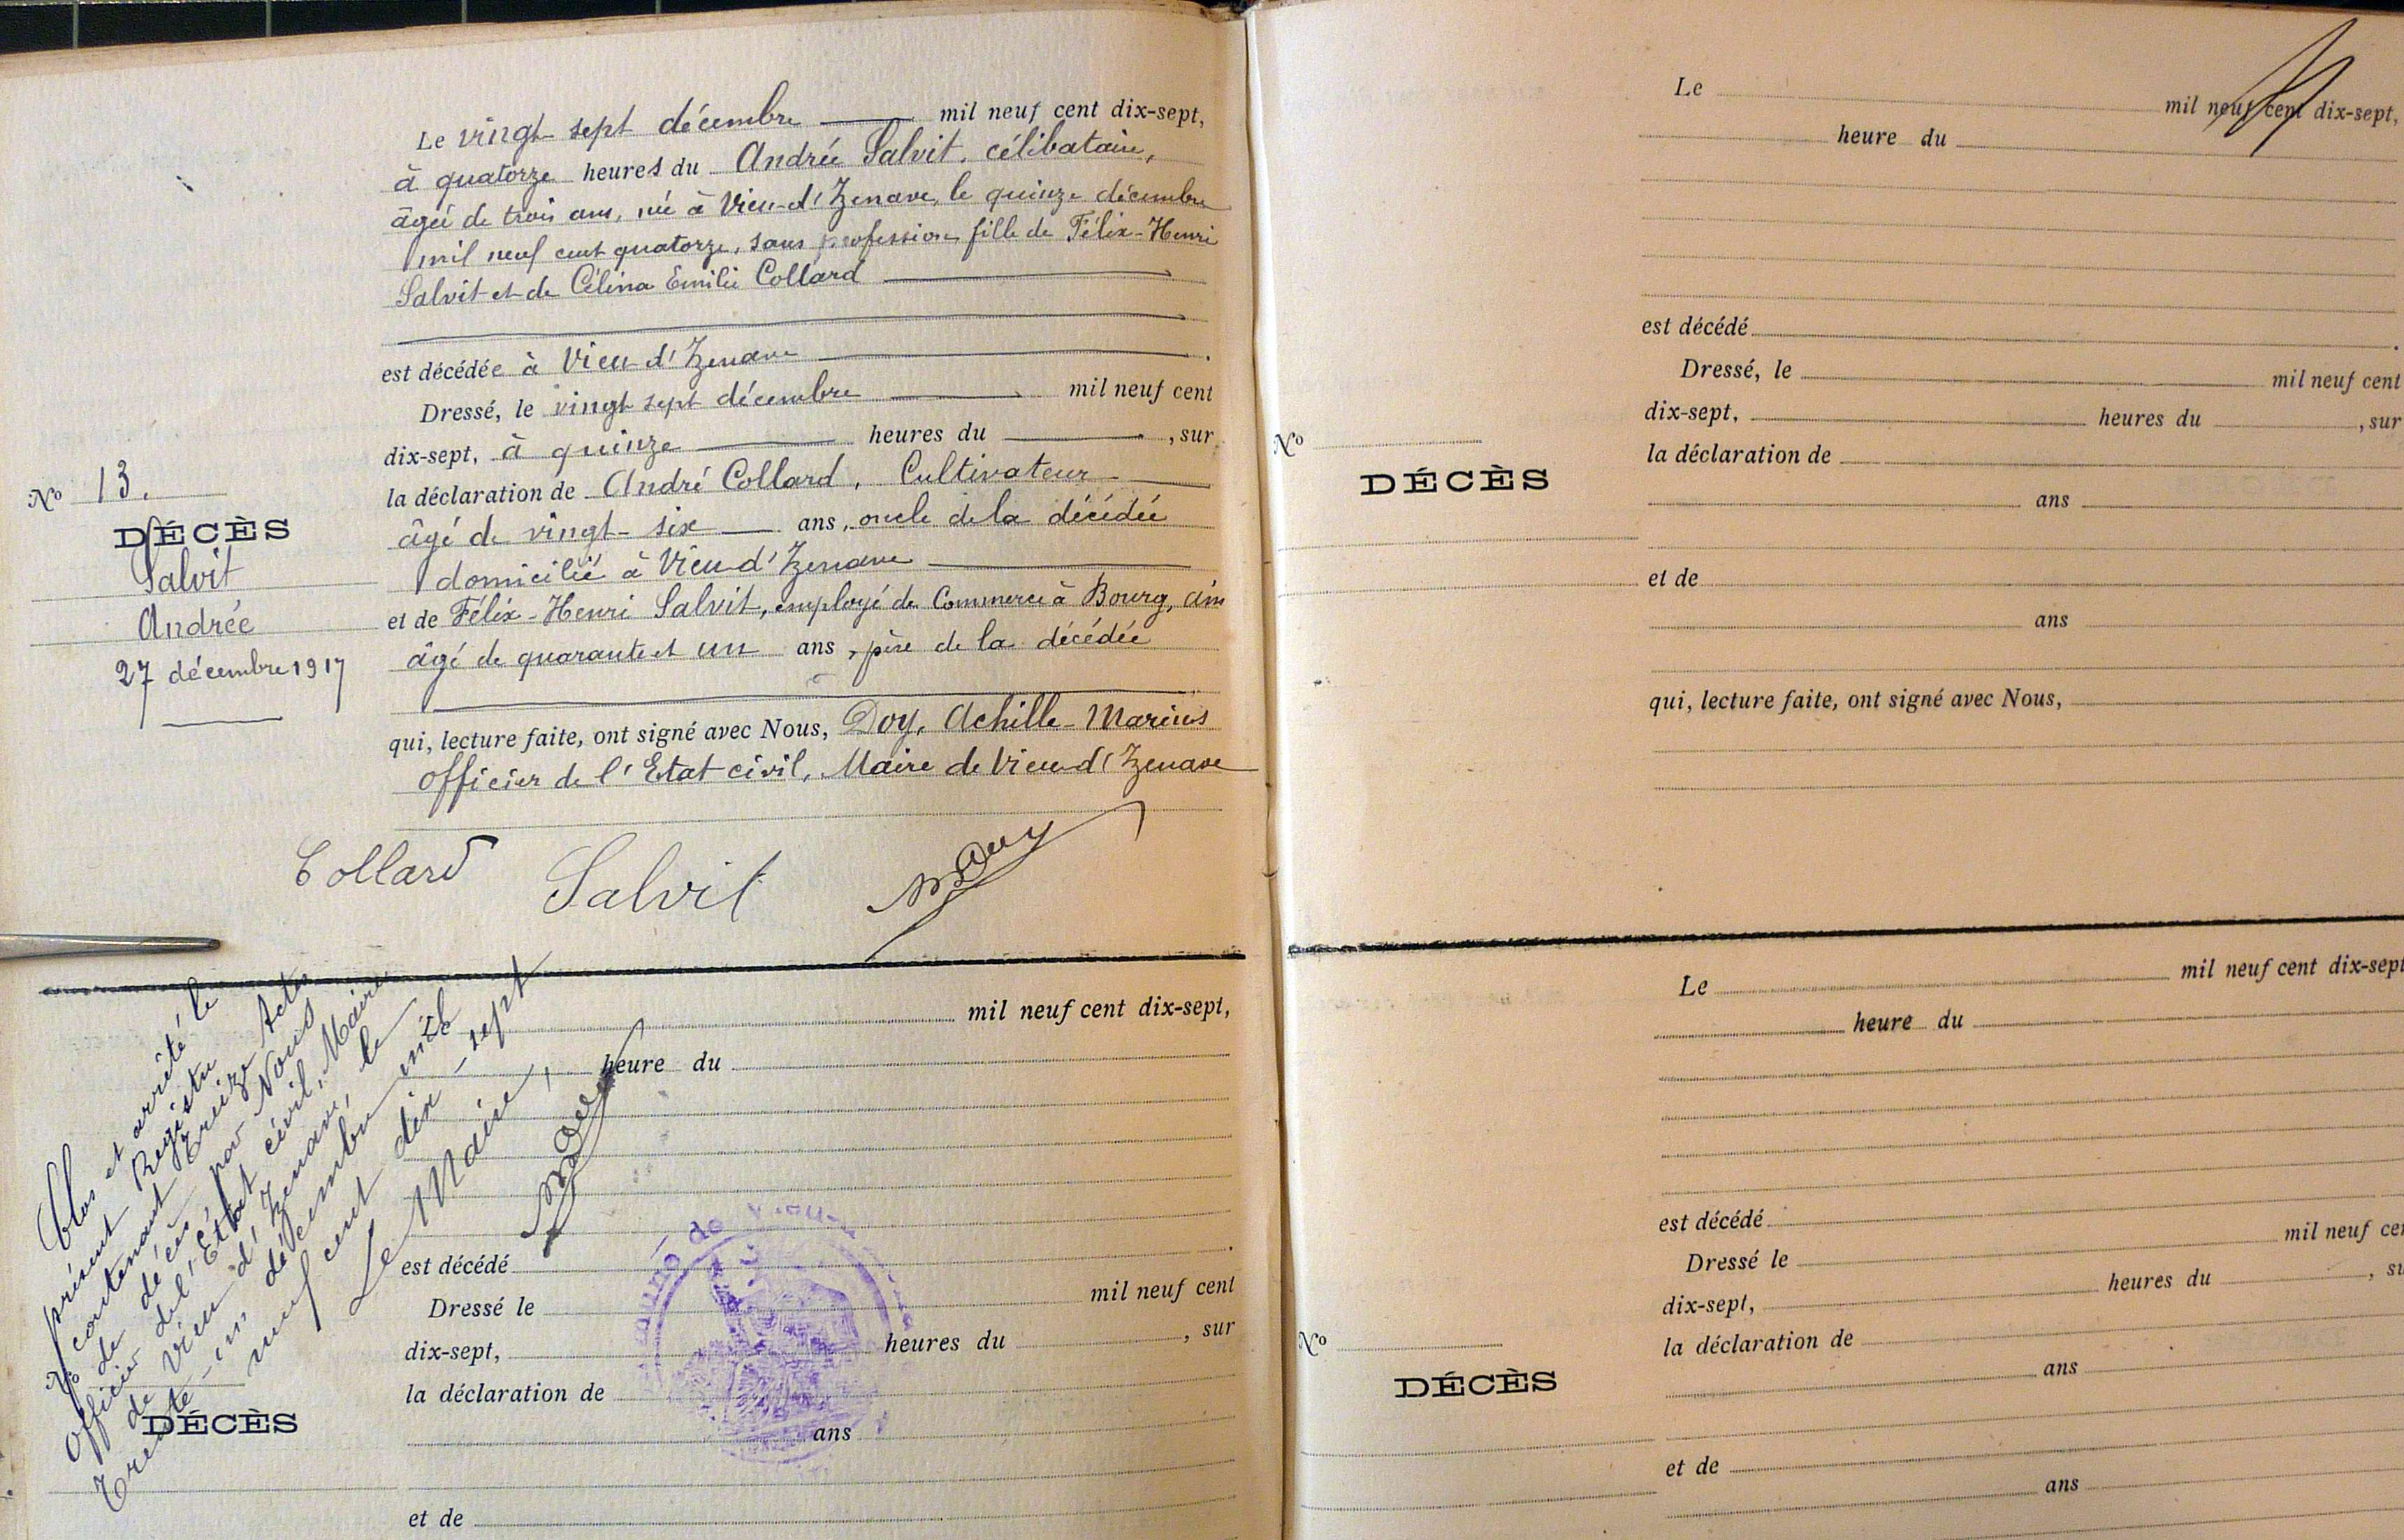 Le vingt-sept décembre mil neuf cent dix-sept,
à quatorze heures du Andrée Salvit, célibataire,
âgée de trois ans, née à Vieu-d'Izenave, le quinze décembre
mil neuf cent quatorze, sans profession, fille de Félix-Henri
Salvit et de Célina Emilie Collard
est décédée à Vieu-d'Izenave .
Dressé, le vingt sept décembre mil neuf cent
dix-sept, à quinze heures du , sur
la déclaration de André Collard, Cultivateur
âgé de vingt-six ans, oncle de la décédée
domicilié à Vieu-d'Izenave
et de Félix-Henri Salvit, employé de Commerce à Bourg, Ain
âgé de quarante et un ans, père de la décédée
qui, lecture faite, ont signé avec Nous, Doy, Achille-Marius
officier de l'Etat civil, Maire de Vieu-d'Izenave
No 13.
DÉCÈS
Salvit
Andrée
27 décembre 1917
Collard Salvit
Clos et arrêté le
présent Registre
contenant treize Actes
de décès par Nous
Officier de l'Etat civil, Maire
de Vieu d'Izenave, le
trente-un décembre mil
neuf cent dix-sept
Le Maire,
mil neuf cent dix-sept,
heure du
est décédé .
Dressé le mil neuf cent
dix-sept, heures du , sur
la déclaration de
ans
et de
No
DÉCÈS
Le mil neuf cent dix-sept,
heure du
est décédé .
Dressé, le mil neuf cent
dix-sept, heures du , sur
la déclaration de
ans
et de
ans
qui, lecture faite, ont signé avec Nous,
No
DÉCÈS
Le mil neuf cent dix-sept
heure du
est décédé
Dressé le mil neuf cen
dix-sept, heures du , su
la déclaration de
ans
et de
ans
No
DÉCÈS